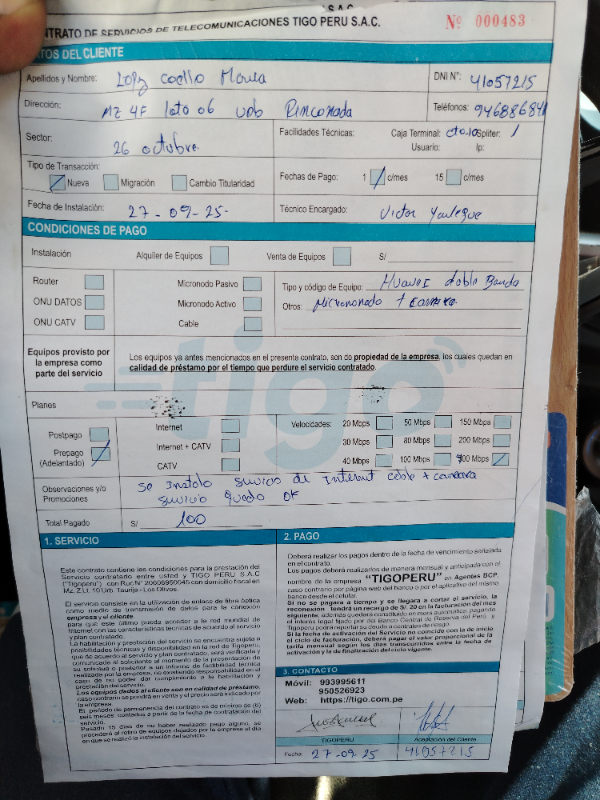 S.A.C.
NTRATO DE SERVICIOS DE TELECOMUNICACIONES TIGO PERU S.A.C.
Nº 000483
TOS DEL CLIENTE
Apellidos y Nombre: Lopz Coello Maria
DNI Nº: 41057215
Dirección: Mz 4F lote 06 Urb Rinconada
Teléfonos: 946886841
Sector: 26 octubre
Facilidades Técnicas: Caja Terminal: cto 10 Spliter: 1
Usuario: Ip:
Tipo de Transacción:
Nueva Migración Cambio Titularidad
Fechas de Pago: 1 c/mes 15 c/mes
Fecha de Instalación: 27-09-25-
Técnico Encargado: Victor
CONDICIONES DE PAGO
Instalación Alquiler de Equipos Venta de Equipos S/
Router
ONU DATOS
ONU CATV
Micronodo Pasivo
Micronodo Activo
Cable
Tipo y código de Equipo: Huawei doble Banda
Otros: Micronodo + camara
Equipos provisto por
la empresa como
parte del servicio
Los equipos ya antes mencionados en el presente contrato, son de propiedad de la empresa, los cuales quedan en
calidad de préstamo por el tiempo que perdure el servicio contratado.
tigo
Planes
Postpago
Prepago
(Adelantado)
Internet
Internet + CATV
CATV
Velocidades: 20 Mbps 50 Mbps 150 Mbps
30 Mbps 80 Mbps 200 Mbps
40 Mbps 100 Mbps 300 Mbps
Observaciones y/o
Promociones
se instalo suvicio de internet cable + camara
suvicio quedo ok
Total Pagado S/ 100
1. SERVICIO
Este contrato contiene las condiciones para la prestación del
Servicio contratado entre usted y TIGO PERU S.A.C
("Tigoperu") con Ruc N° 20606950045 con domicilio fiscal en
Mz. Z Lt. 10 Urb. Taurija - Los Olivos.
El servicio consiste en la utilización de enlace de fibra óptica
como medio de transmisión de datos para la conexión
empresa y el cliente
para que éste último pueda acceder a la red mundial de
Internet con las características técnicas de acuerdo al servicio
y plan contratado.
La habilitación y prestación del servicio se encuentra sujeto a
posibilidades técnicas y disponibilidad en la red de Tigoperu,
que de acuerdo al servicio y plan contratado, será verificada y
comunicada al solicitante al momento de la presentación de
su solicitud o posterior a un informe de factibilidad técnica
realizada por la empresa, no existiendo responsabilidad en el
caso de no poder dar cumplimiento a la habilitación y
prestación de servicio.
Los equipos dados al cliente son en calidad de préstamo.
caso contrario se pondrá en venta y el precio será indicado por
la empresa.
El periodo de permanencia del contrato es de mínimo de (6)
seis meses, contados a partir de la fecha de contratación del
servicio.
Pasado 15 días de no haber realizado pago alguno, se
procederá al retiro de equipos dejados por la empresa el día
en que se realizó la instalación del servicio.
2. PAGO
Deberá realizar los pagos dentro de la fecha de vencimiento señalada
en el contrato.
Los pagos deberá realizarlos de manera mensual y anticipada en
nombre de la empresa "TIGOPERU" en Agentes BCP,
caso contrario por página web del banco o por el aplicativo del mismo
banco desde el celular.
Si no se paga a tiempo y se llegará a cortar el servicio, la
reconexión tendrá un recargo de S/. 20 en la facturación del mes
siguiente,
Si la fecha de activación del Servicio no coincide con la de inicio
del ciclo de facturación, deberá pagar el valor proporcional de la
tarifa mensual según los días transcurridos entre la fecha de
activación y la de finalización del ciclo vigente.
3. CONTACTO
Móvil: 993995611
950526923
Web: https://tigo.com.pe
TIGOPERU
Aceptación del Cliente
Fecha: 27-09-25
41057215